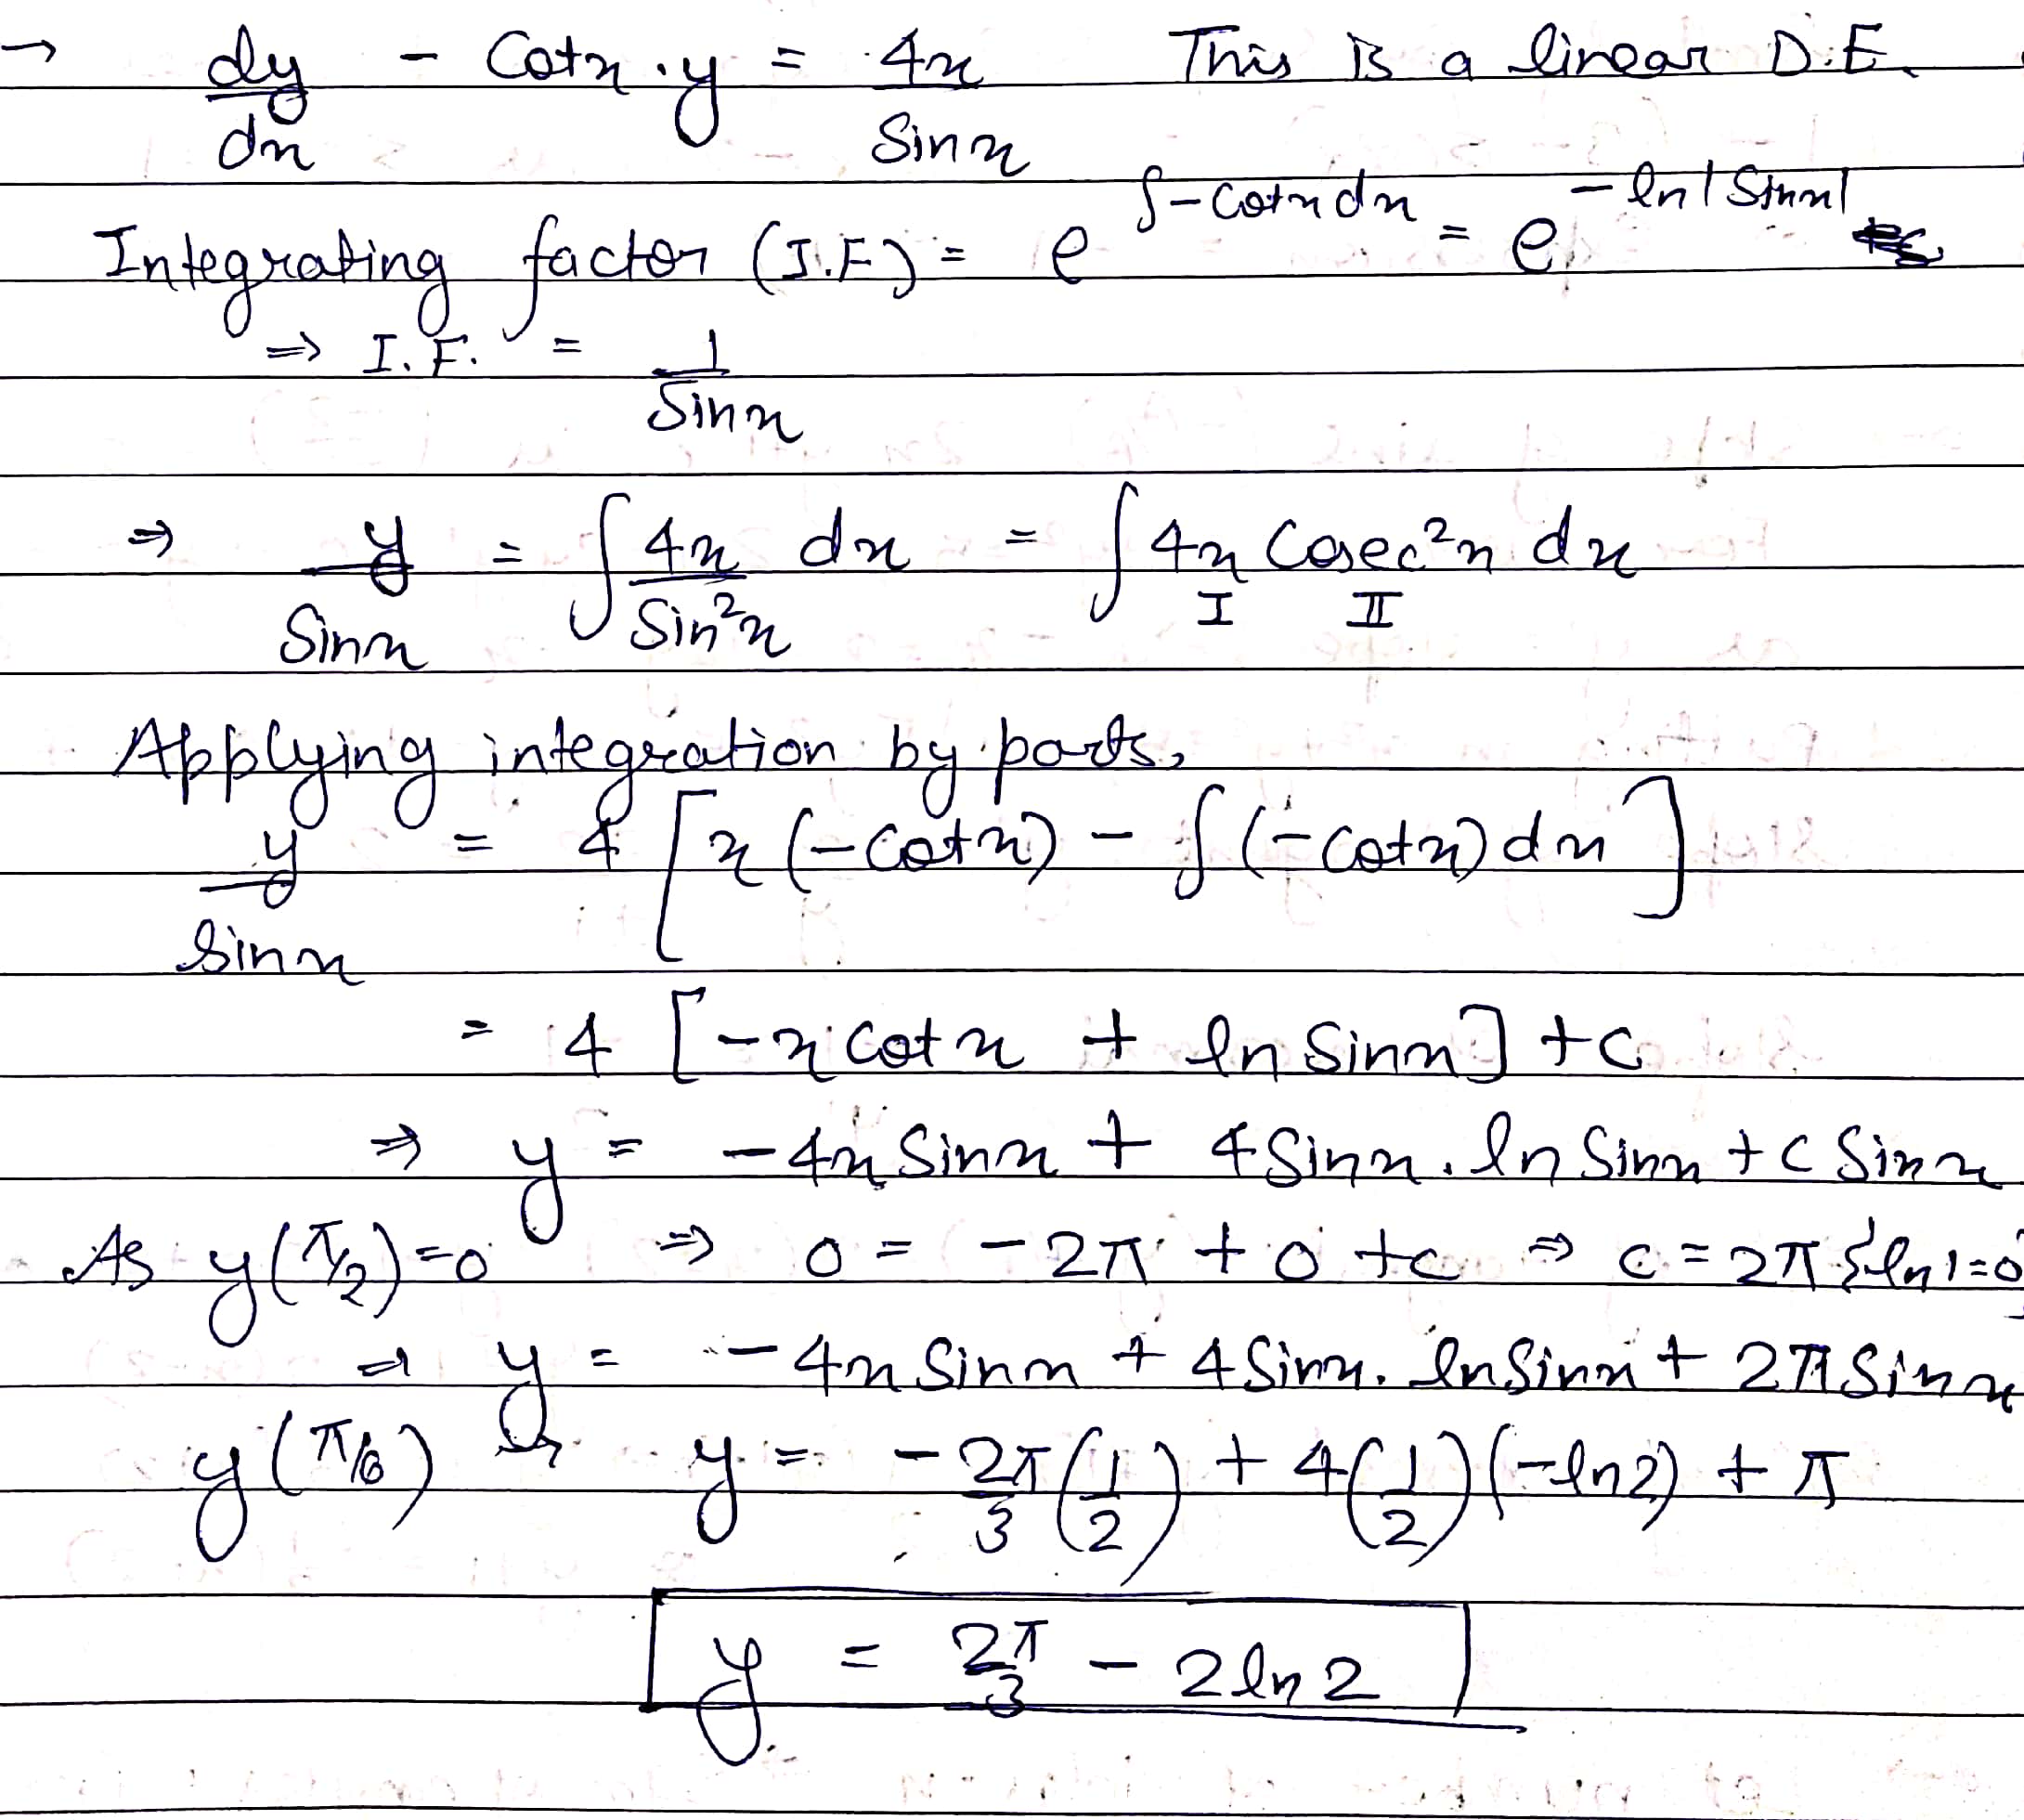 → dy/dx - Cotx . y = 4x/Sinx This is a linear D.E.
Integrating factor (I.F) = e^∫-cotxdx = e^-ln|Sinx|
⇒ I.F. = 1/Sinx
⇒ y/Sinx = ∫ 4x/Sin²x dx = ∫ 4x Cosec²x dx
I II
Applying integration by parts,
y/Sinx = 4 [x (-Cotx) - ∫(-Cotx)dx]
= 4 [-x Cotx + ln Sinx] + c
⇒ y = -4x Sinx + 4 Sinx . ln Sinx + c Sinx
As y(π/2)=0 ⇒ 0 = -2π + 0 + c ⇒ c = 2π {ln1=0}
⇒ y = -4x Sinx + 4 Sinx . ln Sinx + 2π Sinx
y(π/6) is y = -2π/3 (1/2) + 4(1/2)(-ln2) + π
y = 2π/3 - 2ln2